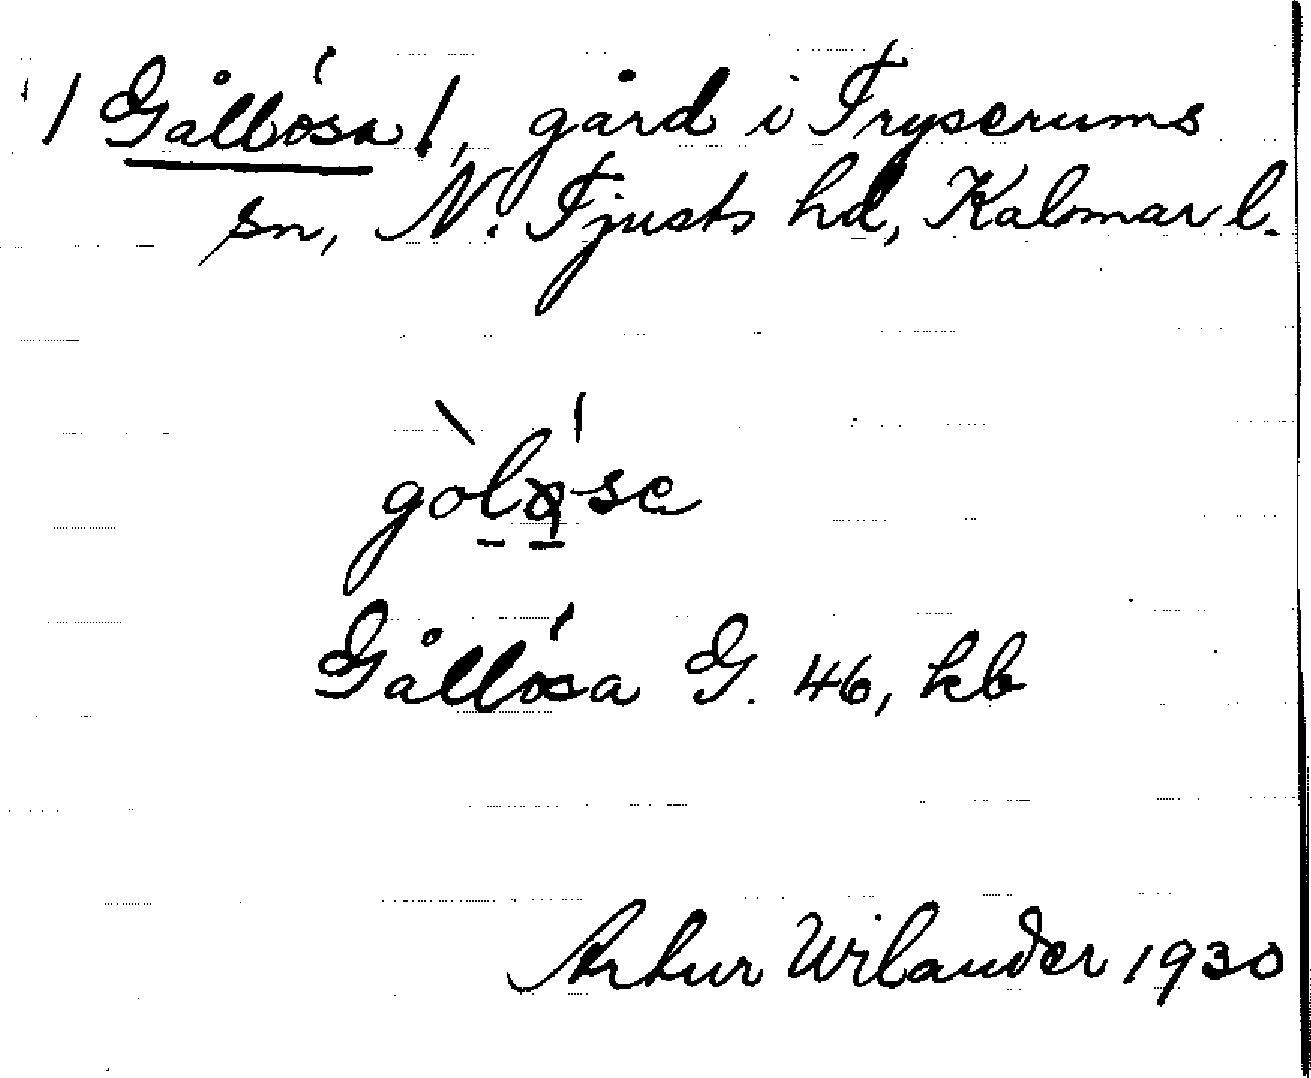 /Gållósa/, gård i Tryserums
sn, N. Tjusts hd, Kalmar l.
gòló̱sa
Gållósa G. 46, kb
Artur Wilander 1930